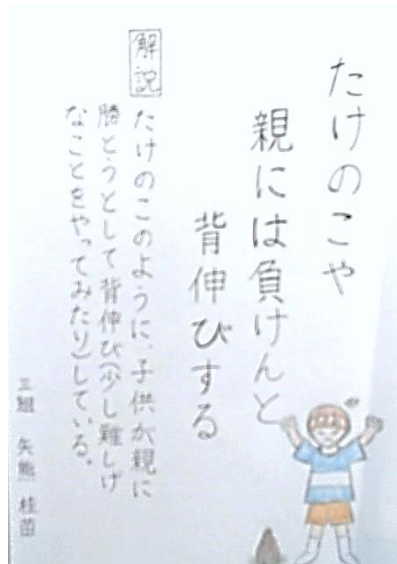 たけのこや
親には負けんと
背伸びする
解説
たけのこのように、子供が親に
勝とうとして背伸び(少し難しげ
なことをやってみたり)している。
矢熊 桂苗